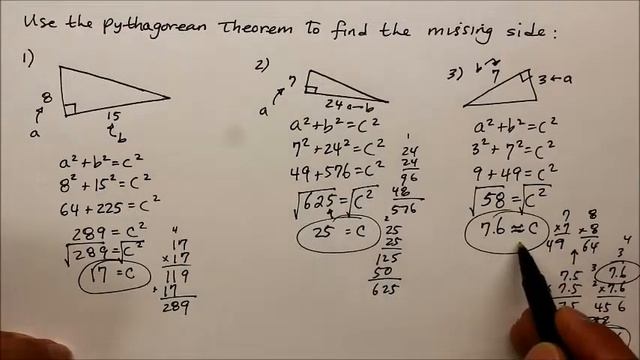 Use the pythagorean Theorem to find the missing side:
1)
8
a
15
b
a²+b²=c²
8²+15²=c²
64+225=c²
289=c²
√289=√c²
17=c
4
17
×17
119
+17
289
2)
7
a
24
b
a²+b²=c²
7²+24²=c²
49+576=c²
√625=√c²
25=c
1
24
24
96
48
576
2
25
25
125
50
625
3)
b
7
3
a
a²+b²=c²
3²+7²=c²
9+49=c²
√58=√c²
7.6≈c
7
×7
49
8
×8
64
7.5
×7.5
3
2
3
4
7.6
×7.6
456